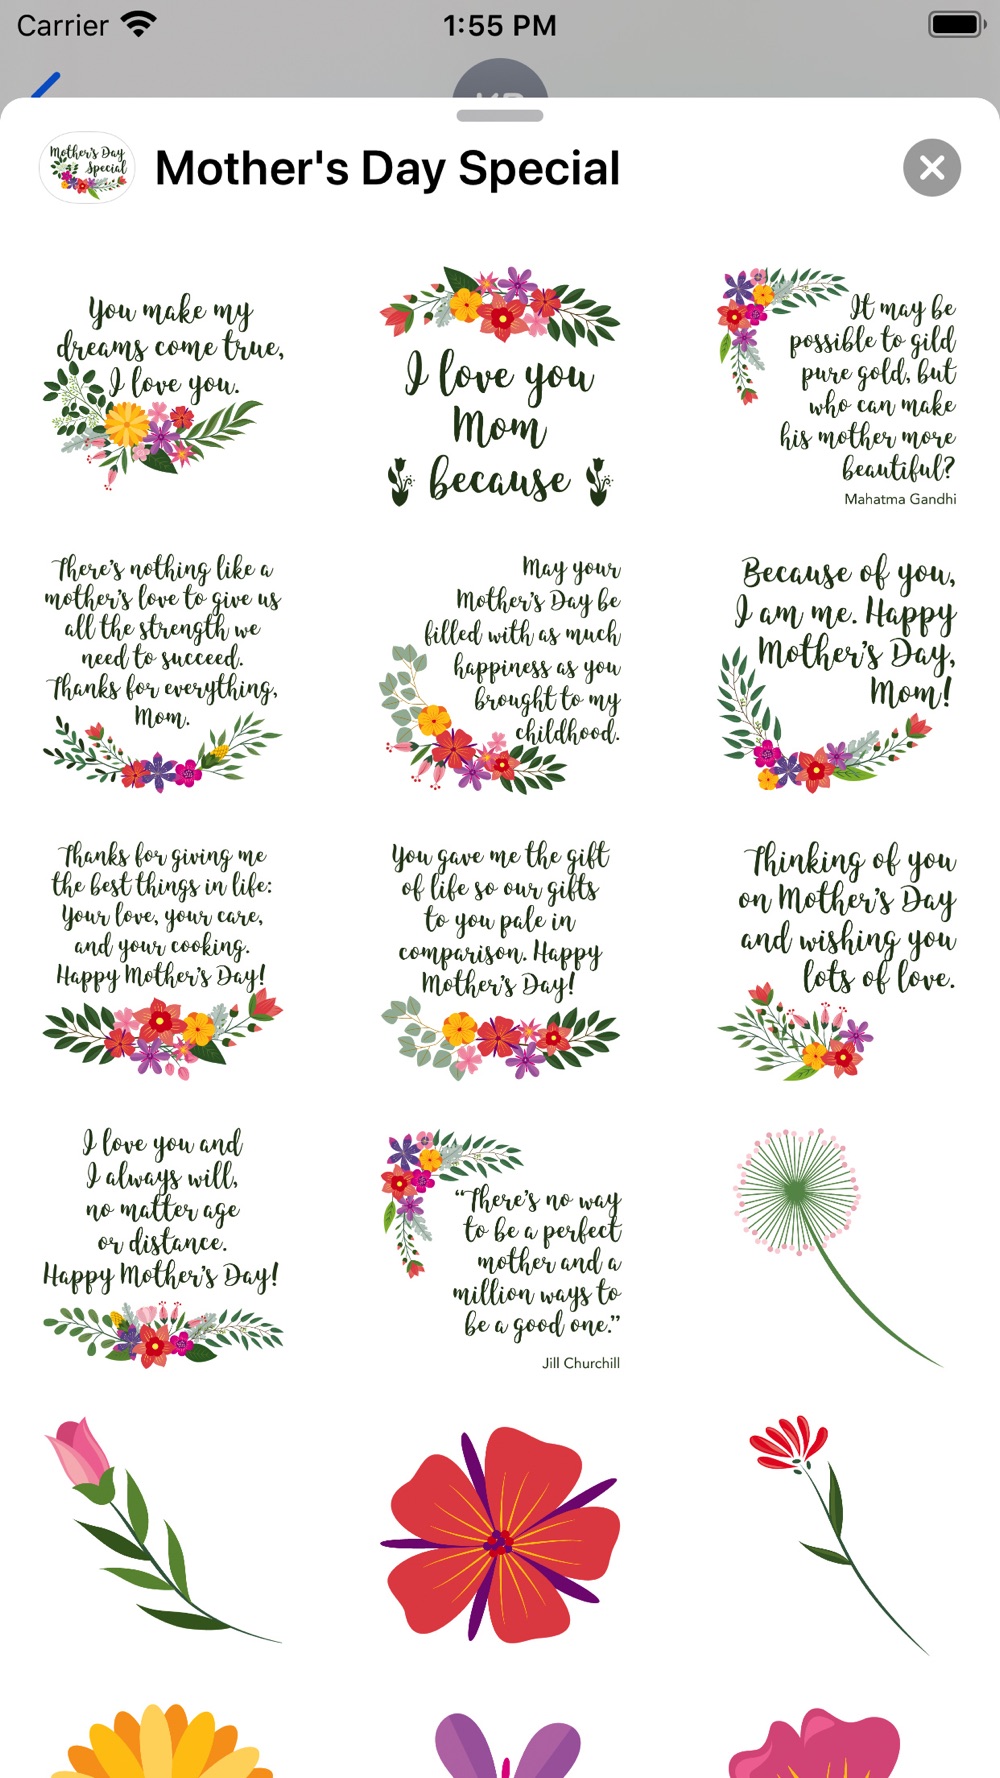 Carrier
1:55 PM
Mother's Day
Special
Mother's Day Special
You make my
dreams come true,
I love you.
I love you
Mom
because
It may be
possible to gild
pure gold, but
who can make
his mother more
beautiful?
Mahatma Gandhi
There's nothing like a
mother's love to give us
all the strength we
need to succeed.
Thanks for everything,
Mom.
May your
Mother's Day be
filled with as much
happiness as you
brought to my
childhood.
Because of you,
I am me. Happy
Mother's Day,
Mom!
Thanks for giving me
the best things in life:
Your love, your care,
and your cooking.
Happy Mother's Day!
You gave me the gift
of life so our gifts
to you pale in
comparison. Happy
Mother's Day!
Thinking of you
on Mother's Day
and wishing you
lots of love.
I love you and
I always will,
no matter age
or distance.
Happy Mother's Day!
"There's no way
to be a perfect
mother and a
million ways to
be a good one."
Jill Churchill